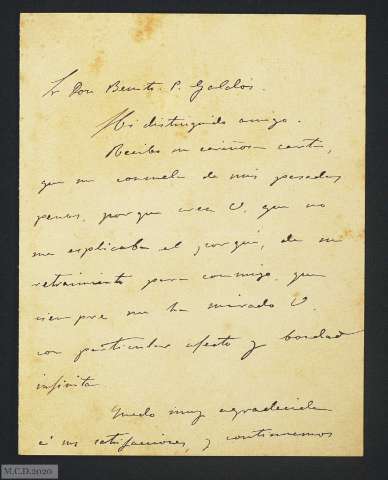 Sr Don Benito P. Galdós.
Mi distinguido amigo.
Recibo su cariñosa carta,
que me consuela de mis pasadas
penas, porque crea V. que no
me explicaba el porqué, de su
retraimiento para conmigo, que
siempre me ha mirado V.
con particular afecto y bondad
infinita.
Quedo muy agradecida
á sus satisfacciones, y continuemos
M.C.D.2020